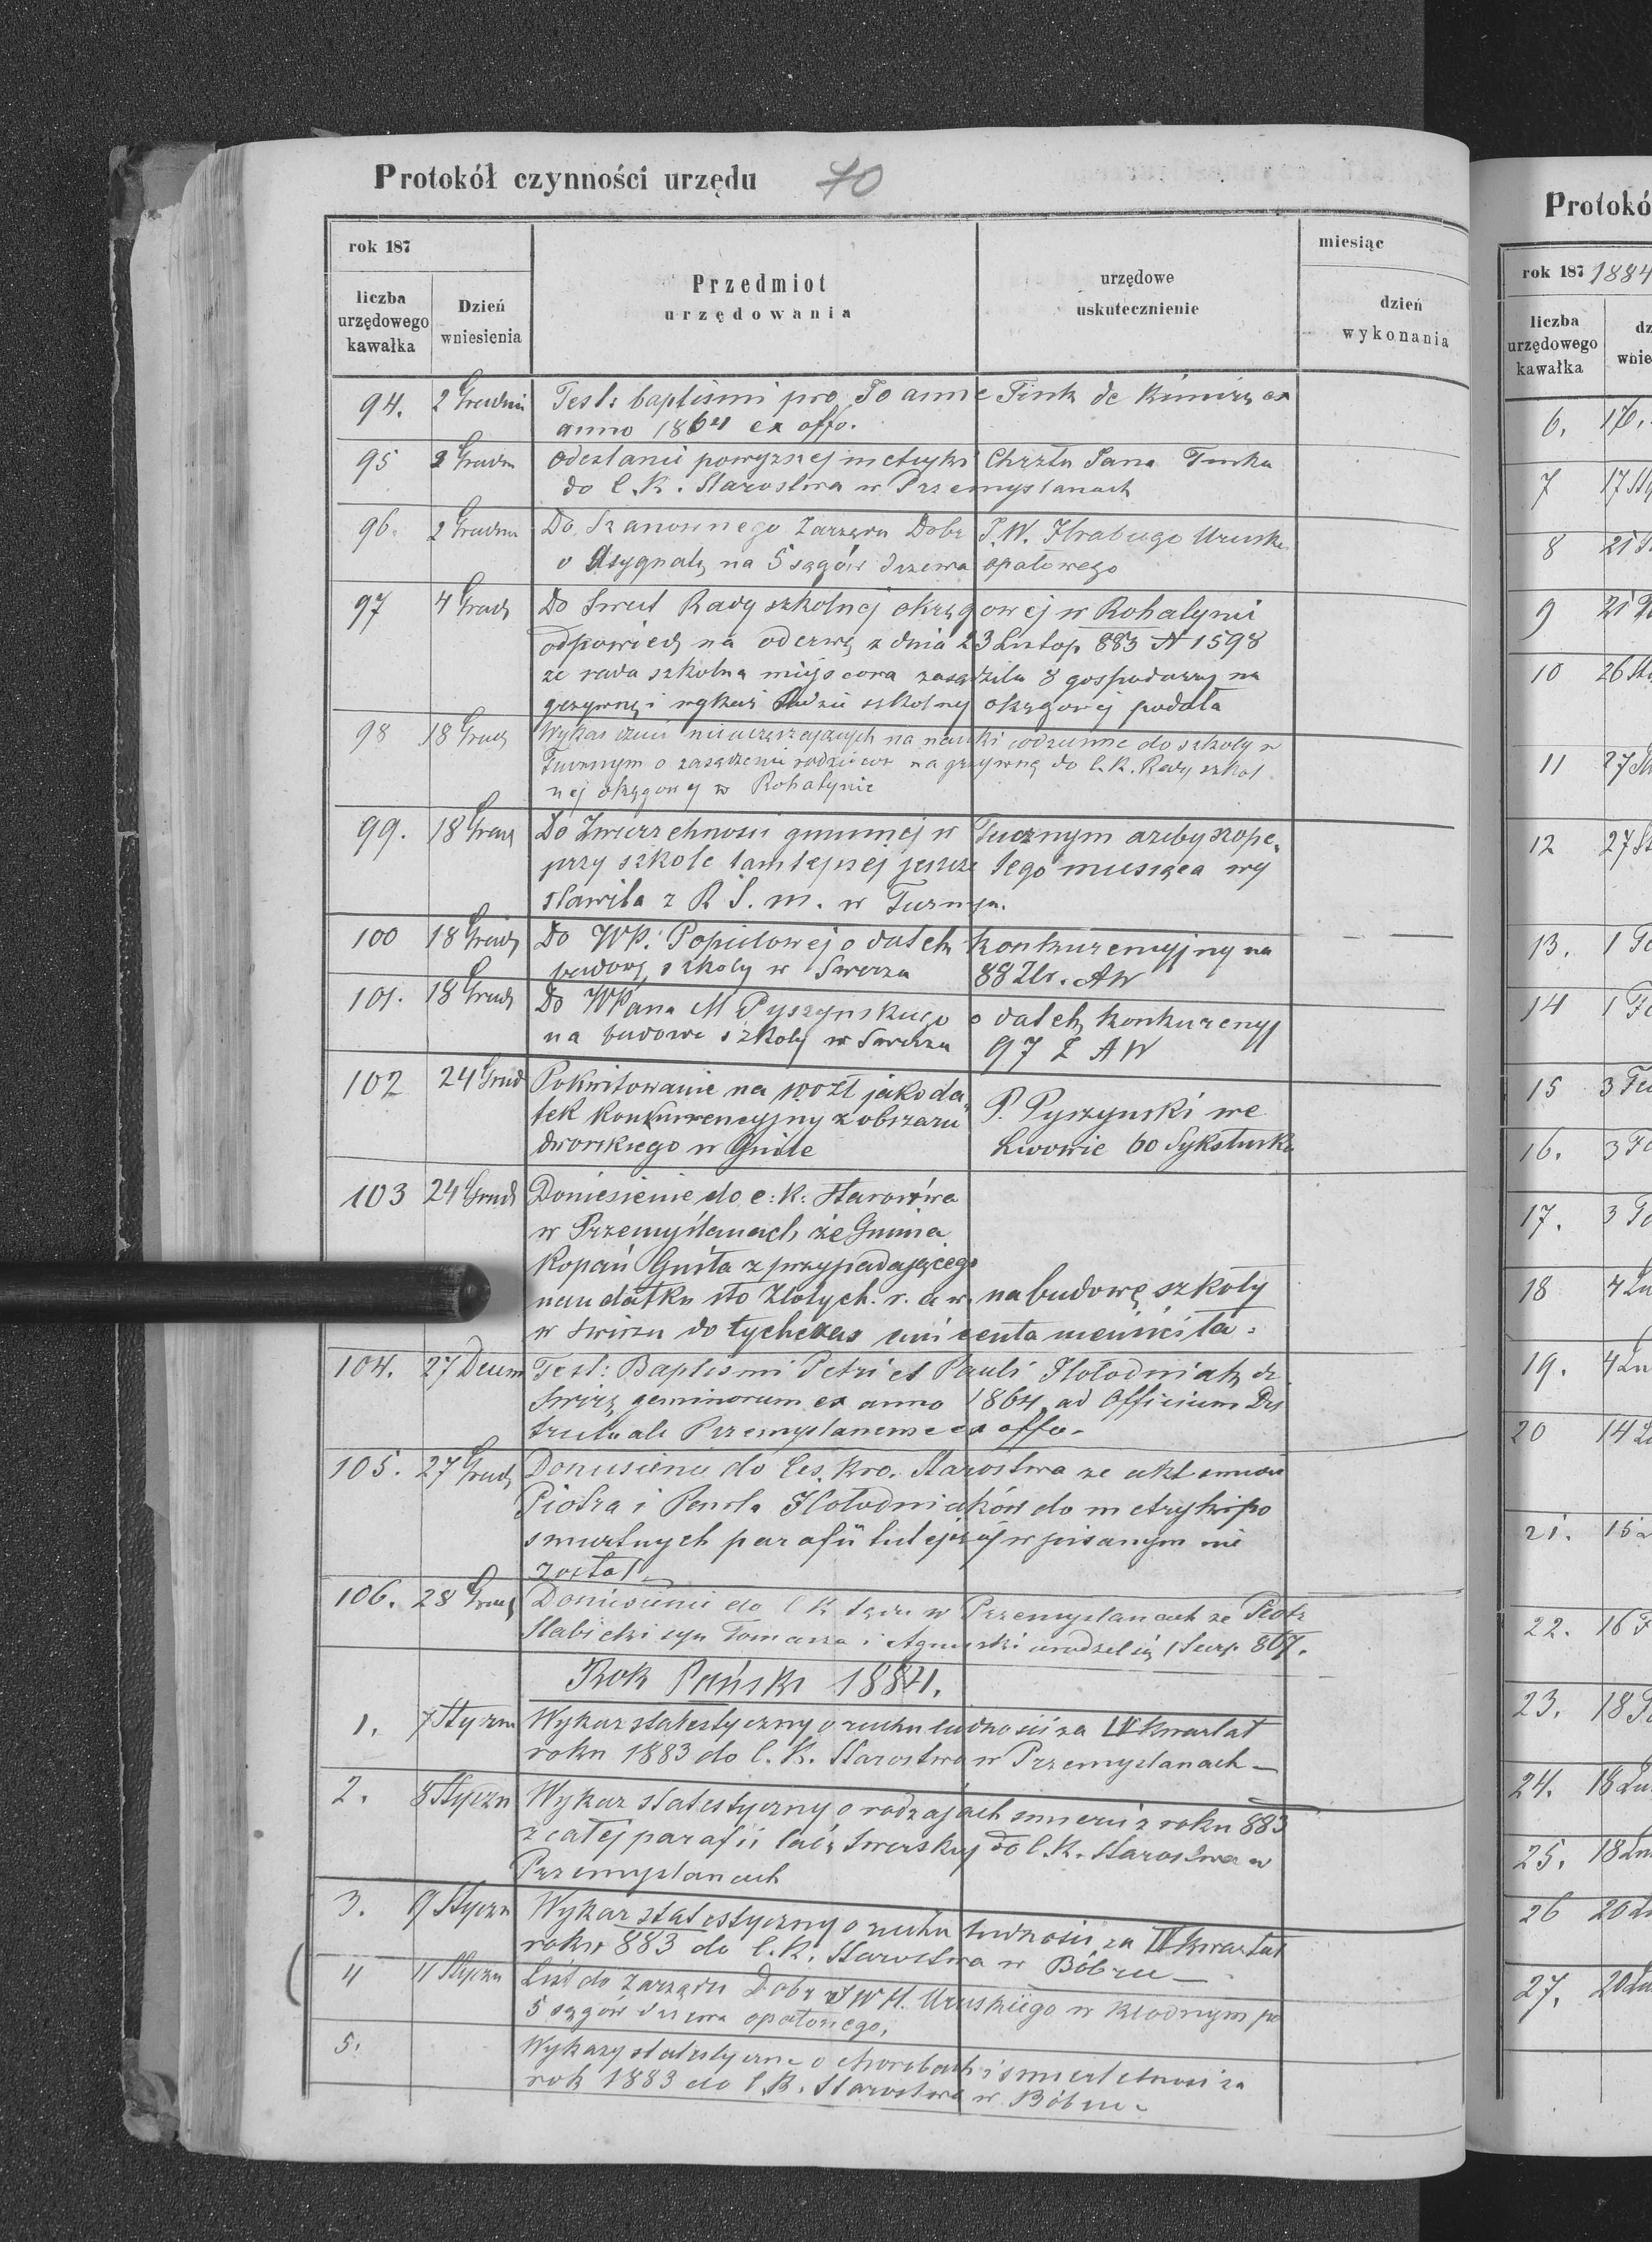 Protokół czynności urzędu 70
rok 187
miesiąc
liczba urzędowego kawałka
Dzień wniesienia
Przedmiot urzędowania
urzędowe uskutecznienie
dzień wykonania
94. 2 Grudnia Test: baptismi pro Joanne Fink de Kimirz ex
anno 1864 ex offo.
95 2 Grudn Odesłanie powyższej metryki Chrztu Jana Finka
do C. K. Starostwa w Przemyslanach
96. 2 Grudnia Do Szanownego Zarządu Dobr J. W. Hrabiego Uruski
o Asygnatę na 5 sągów drzewa opałowego
97 4 Grud Do Swiet Rady szkolnej okręgowej w Rohatynie
odpowiedź na oderwę z dnia 23 Listop 883 N 1598
ze rada szkolna miejscowa zasądziła 8 gospodarzy na
grzywnę i wykaz Radzie szkolnej okręgowej podała
98 18 Grud Wykaz dzieci nieuczęszczających na nauki codzienne do szkoły w
Tucznym o zasądzenie rodziców na grzywnę do C. K. Rady szkol
nej okręgowej w Rohatynie
99. 18 Grud Do Zwierzchności gminnej w Tucznym azeby szopę
przy szkole tamtejszej jeszcze tego miesiąca wy
stawiła z R S. m. w
100 18 Grud Do WP. Popielowej o datek konkurencyjny na
budowę szkoły w Swirzu 88 Złr. AW
101. 18 Grud Do WPana M Pyszynskiego o datek konkurencyj
na budowe szkoły w Swirzu 97 Z AW
102 24 Grud Pokwitowanie na 100 zł jako da
tek konkurencyjny z obszaru
dworskiego w
P. Pyszynski we
Lwowie 60 Sykstuska
103 24 Grud Doniesienie do c: k: Starostwa
w Przemyślanach, że Gmina
Kopań z przypadającego
datku sto Złotych. r. a w. na budowę szkoły
w Swirzu do tychczas ani centa nieuiściła.
104. 27 Decem Test: Baptismi Petri et Pauli Hołodniak de
Swirz geminorum ex anno 1864 ad Officium Dis
trictuale Przemyslanense ex offo.
105. 27 Grud Doniesienie do Ces. Kro. Starostwa ze akt smierci
Piotra i Pawła Hołodniaków do metryki po
smiertnych parafii tutejszej wpisanym nie
został
106. 28 Grud Doniesienie do C K Sądu w Przemyslanach ze Piotr
Słabicki syn Tomasza i Agnieszki urodzil się 1 Sierp. 867.
Rok Pański 1884.
1. 7 Styczn Wykaz statestyczny o ruchu ludności za IV Kwartał
roku 1883 do C. K. Starostwa w Przemyslanach
2. 8 Styczn Wykaz statestyczny o rodzajach smierci z roku 883
z całej parafii łać: Swirskiej do C. K. Starostwa w
Przemyslanach
3. 9 Styczn Wykaz statestyczny o ruchu ludności za IV Kwartał
roku 883 do C. K. Starostwa w Bóbrce
4 11 Styczn List do Zarządu Dobr JW H. Uruskiego w Kłodnym po
5 sągów drzewa opałowego.
5. Wykazy statestyczne o chorobach i smiertelnosci za
rok 1883 do C. K. Starostwa w Bóbrce
Protokó
rok 187 1884
liczba urzędowego kawałka
6. 16.
7 17
8 21
9 21
10 26
11 27
12 27
13. 1
14 1
15 3
16. 3
17. 3
18 4
19. 4
20 14
21. 15
22. 16
23. 18
24. 18
25. 18
26 20
27. 20